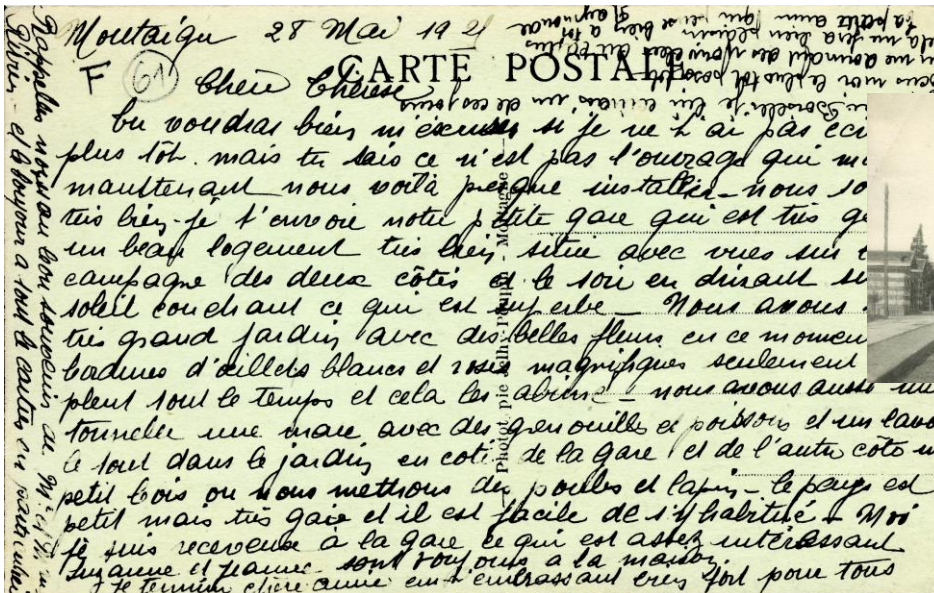 Montaigu 28 Mai 1921
F 61
CARTE POSTALE
Chère Thérèse
Tu voudras bien m'excuser si je ne t'ai pas
plus tôt. mais tu sais ce n'est pas l'ouvrage qui
maintenant nous voilà presque installés - nous
très bien - je t'envoie notre petite gare qui est très
un beau logement très bien situé avec vues sur
campagne des deux côtés et le soir en dinant
soleil couchant ce qui est superbe - Nous avons
très grand jardin avec des belles fleurs en ce
bordures d'œillets blancs et roses magnifiques seulement
pleut tout le temps et cela les abime - nous avons aussi
tonnelle une mare avec des grenouilles et poissons et un
le tout dans le jardin en coté de la gare et de l'autre coté
petit bois ou nous mettrons des poules et lapins - le pays est
petit mais très gaie et il est facile de s'y habitué - Moi
je suis receveuse à la gare ce qui est assez intéressant
Suzanne et Jeanne sont toujours à la maison.
Je termine chère amie en t'embrassant bien fort pour tous
Rappelles nous au bon souvenir de
et bonjour a tout le
je t'en envoie un de ces jours
le plus tôt possible
cela me fera bien plaisir
Phototypie Pelh-Pault, Montaigu